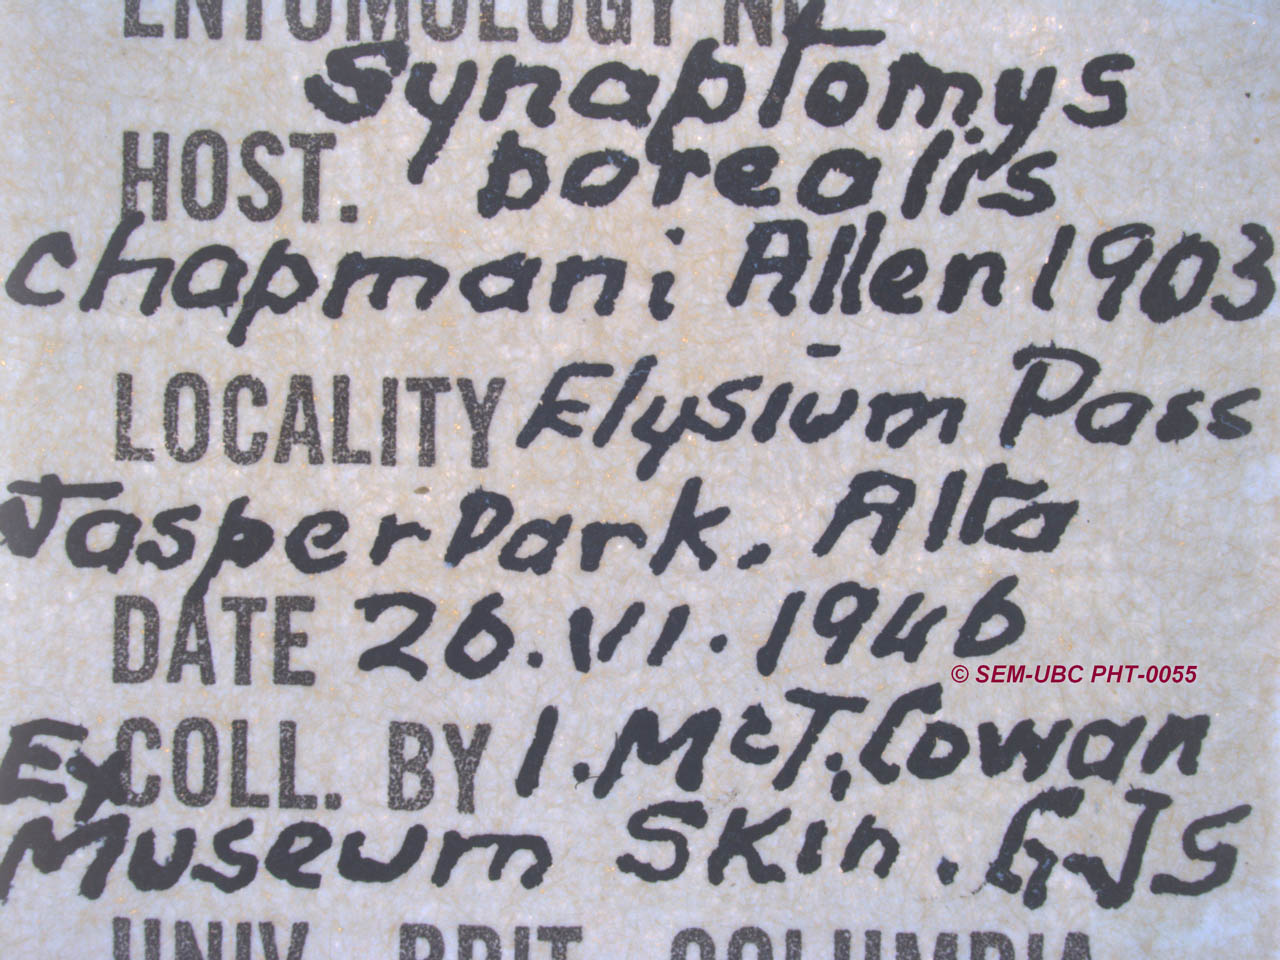 ENTOMOLOGY No
Synaptomys
HOST. borealis
chapmani Allen 1903
LOCALITY Elysium Pass
Jasper Park. Alta
DATE 26.VI.1946
© SEM-UBC PHT-0055
Ex COLL. BY I.McT.Cowan
Museum Skin. G-JS
UNIV. BRIT. COLUMBIA